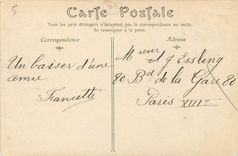 5
Carte Postale
Tous les pays étrangers n'acceptent pas la correspondance au recto.
Se renseigner à la poste.
Correspondance
Adresse
Un baiser d'une
amie
Francette
Mieur g Essling
80 Bd de la Gare 80
Paris XIIIe